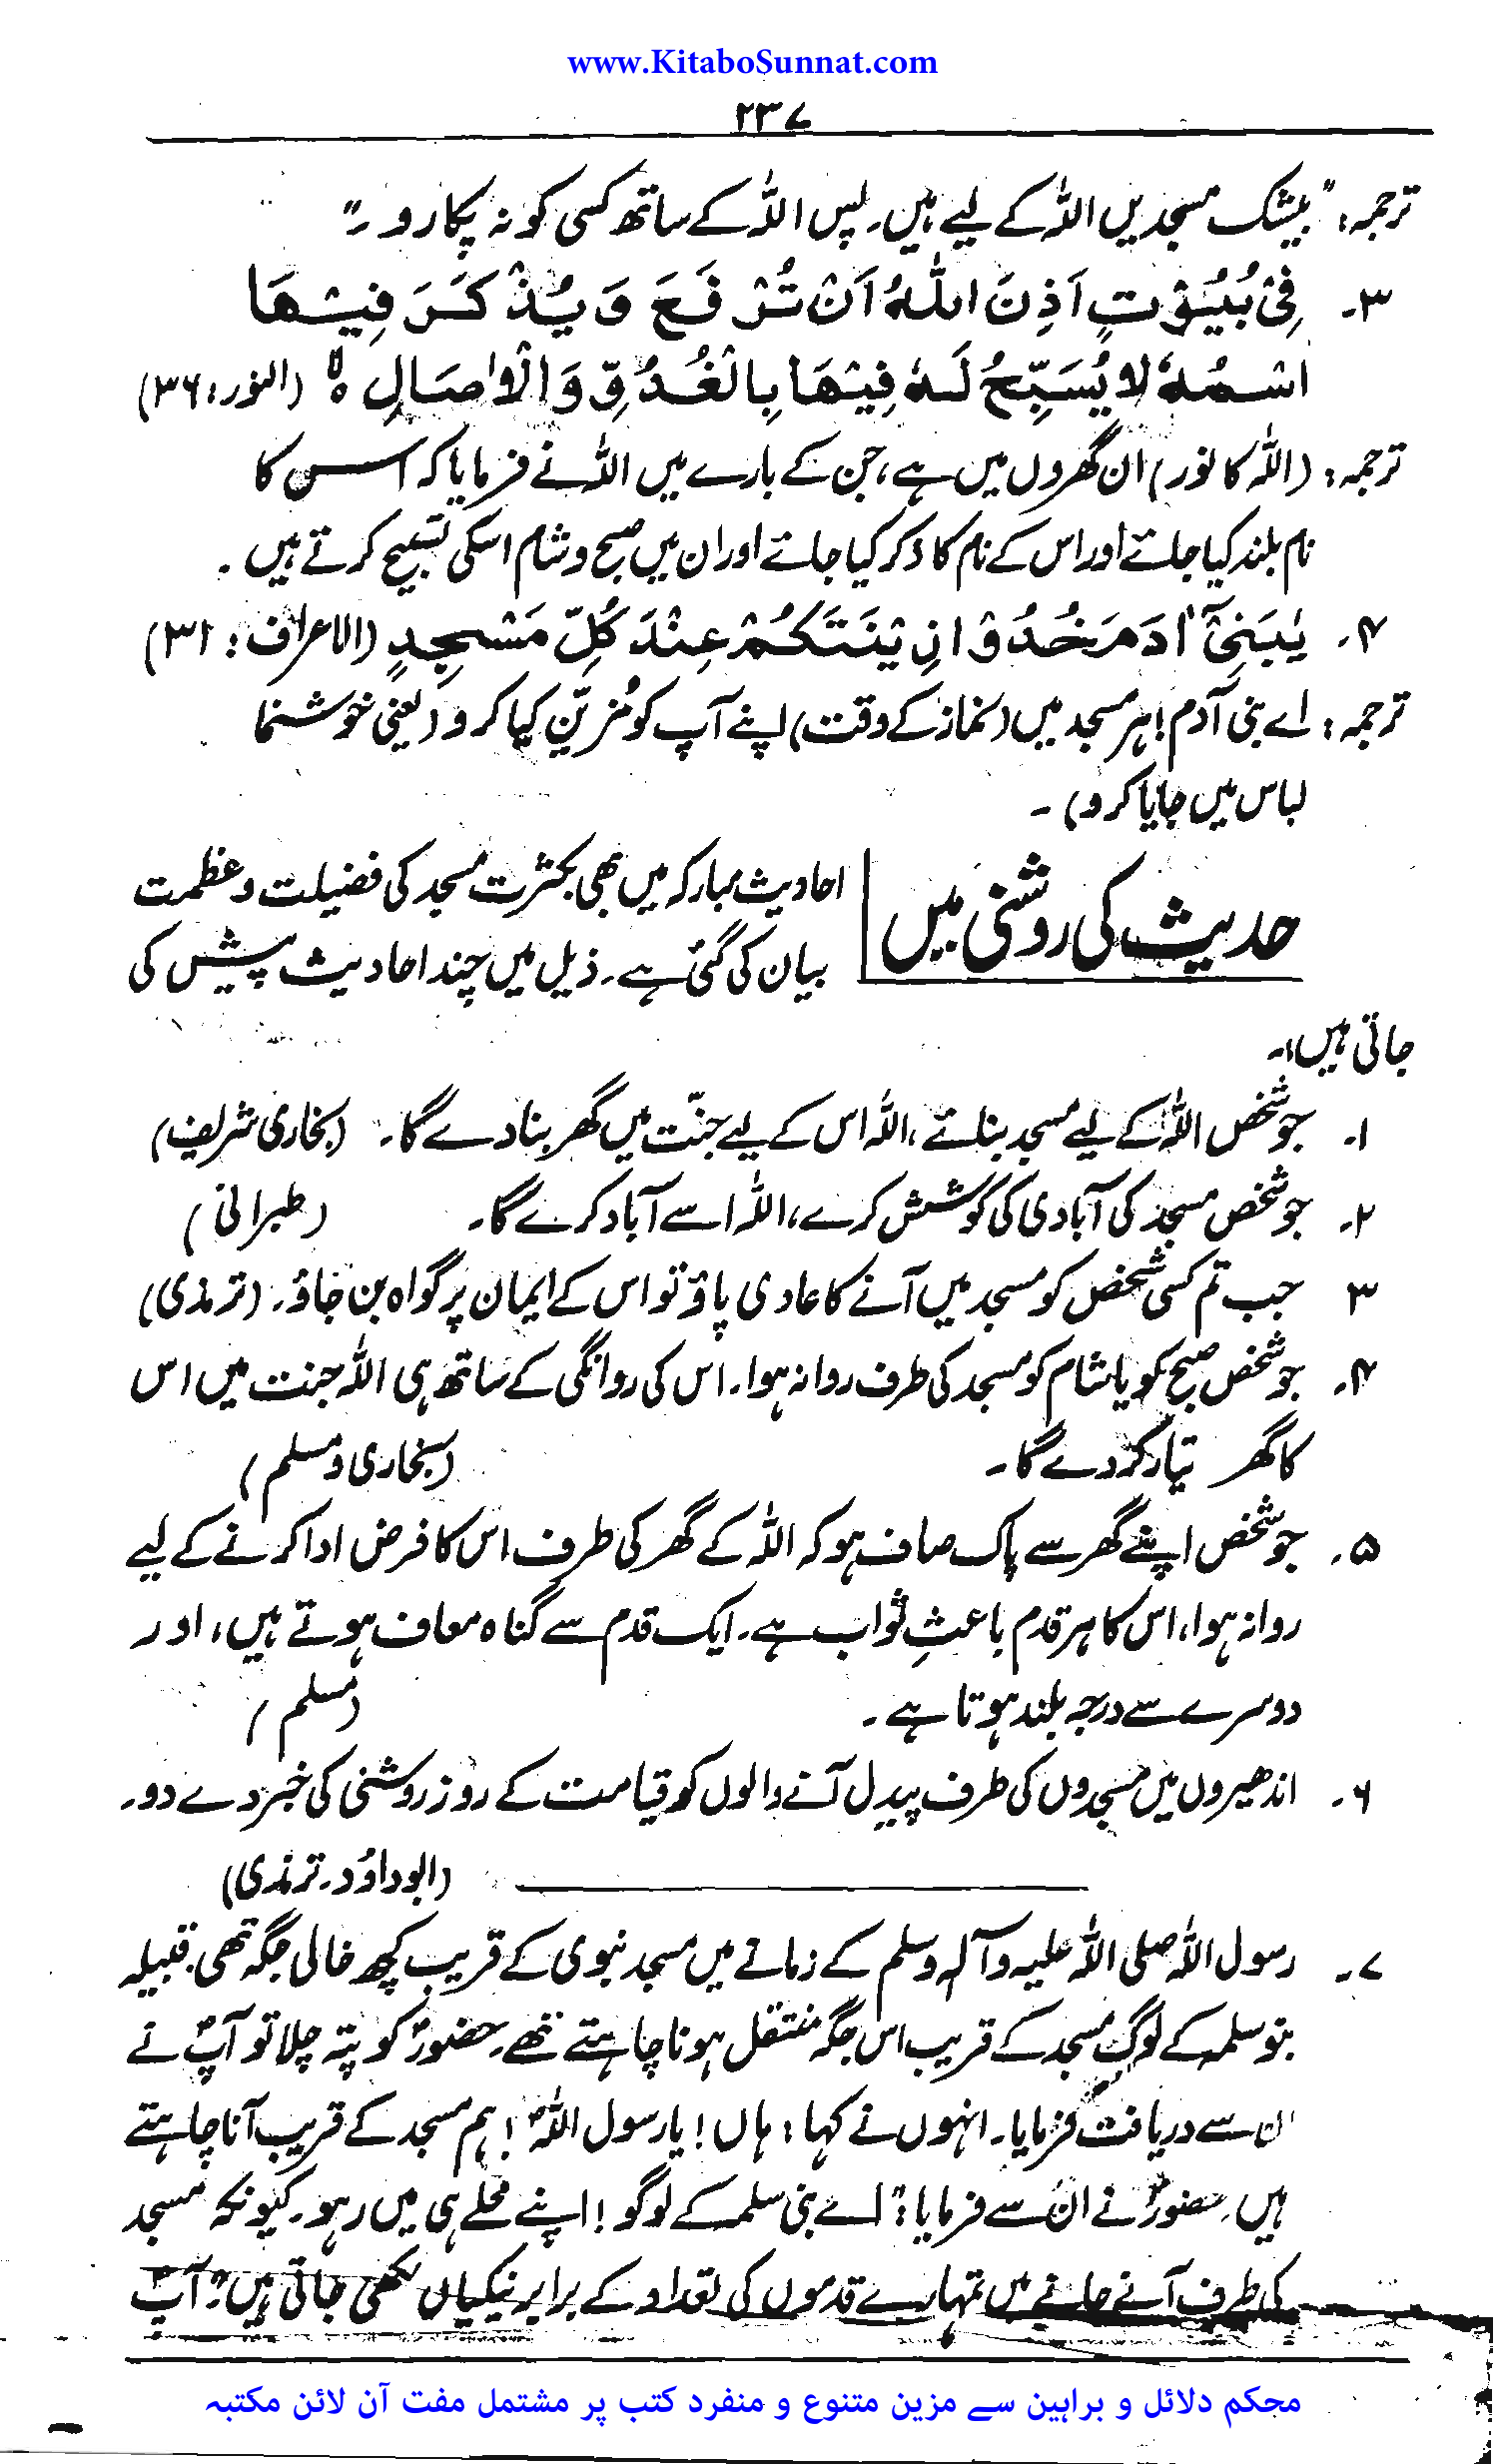 www.KitaboSunnat.com
۲۳۷
ترجمہ: "بیشک مسجدیں اللہ کے لیے ہیں۔ پس اللہ کے ساتھ کسی کو نہ پکارو۔"
۳۔ فِیْ بُیُوْتٍ اَذِنَ اللہُ اَنْ تُرْفَعَ وَیُذْکَرَ فِیْھَا
اسْمُہٗ لا یُسَبِّحُ لَہٗ فِیْھَا بِالْغُدُوِّ وَالْاٰصَالِ ہ لا (النور: ۳۶)
ترجمہ: (اللہ کا نور) ان گھروں میں ہے، جن کے بارے میں اللہ نے فرمایا کہ اس کا
نام بلند کیا جائے اور اس کے نام کا ذکر کیا جائے اور ان میں صبح و شام اسکی تسبیح کرتے ہیں۔
۴۔ یٰبَنِیْٓ اٰدَمَ خُذُوْا زِیْنَتَکُمْ عِنْدَ کُلِّ مَسْجِدٍ (الاعراف: ۳۱)
ترجمہ: اے بنی آدم! ہر مسجد میں (نماز کے وقت) اپنے آپ کو مُزیّن کیا کرو (یعنی خوشنما
لباس میں جایا کرو)۔
حدیث کی روشنی میں
احادیث مبارکہ میں بھی بکثرت مسجد کی فضیلت و عظمت
بیان کی گئی ہے۔ ذیل میں چند احادیث پیش کی
جاتی ہیں:۔
۱۔ جو شخص اللہ کے لیے مسجد بنائے، اللہ اس کے لیے جنّت میں گھر بنا دے گا۔ (بخاری شریف)
۲۔ جو شخص مسجد کی آبادی کی کوشش کرے، اللہ اسے آباد کرے گا۔ (طبرانی)
۳ جب تم کسی شخص کو مسجد میں آنے کا عادی پاؤ تو اس کے ایمان پر گواہ بن جاؤ۔ (ترمذی)
۴۔ جو شخص صبح کو یا شام کو مسجد کی طرف روانہ ہوا۔ اس کی روانگی کے ساتھ ہی اللہ جنت میں اس
کا گھر تیار کر دے گا۔ (بخاری و مسلم)
۵۔ جو شخص اپنے گھر سے پاک صاف ہو کہ اللہ کے گھر کی طرف اس کا فرض ادا کرنے کے لیے
روانہ ہوا، اس کا ہر قدم باعثِ ثواب ہے۔ ایک قدم سے گناہ معاف ہوتے ہیں، اور
دوسرے سے درجہ بلند ہوتا ہے۔ (مسلم)
۶۔ اندھیروں میں مسجدوں کی طرف پیدل آنے والوں کو قیامت کے روز روشنی کی خبر دے دو۔
(ابوداؤد۔ ترمذی)
۷۔ رسول اللہ صلی اللہ علیہ وآلہ وسلم کے زمانے میں مسجد نبوی کے قریب کچھ خالی جگہ تھی قبیلہ
بنو سلمہ کے لوگ مسجد کے قریب اس جگہ منتقل ہونا چاہتے تھے۔ حضورؐ کو پتہ چلا تو آپؐ نے
ان سے دریافت فرمایا۔ انہوں نے کہا: ہاں! یا رسول اللہؐ! ہم مسجد کے قریب آنا چاہتے
ہیں۔ حضورؐ نے ان سے فرمایا: "اے بنی سلمہ کے لوگو! اپنے محلے ہی میں رہو۔ کیونکہ مسجد
کی طرف آنے جانے میں تمہارے قدموں کی تعداد کے برابر نیکیاں لکھی جاتی ہیں"۔ آپؐ
محکم دلائل و براہین سے مزین متنوع و منفرد کتب پر مشتمل مفت آن لائن مکتبہ